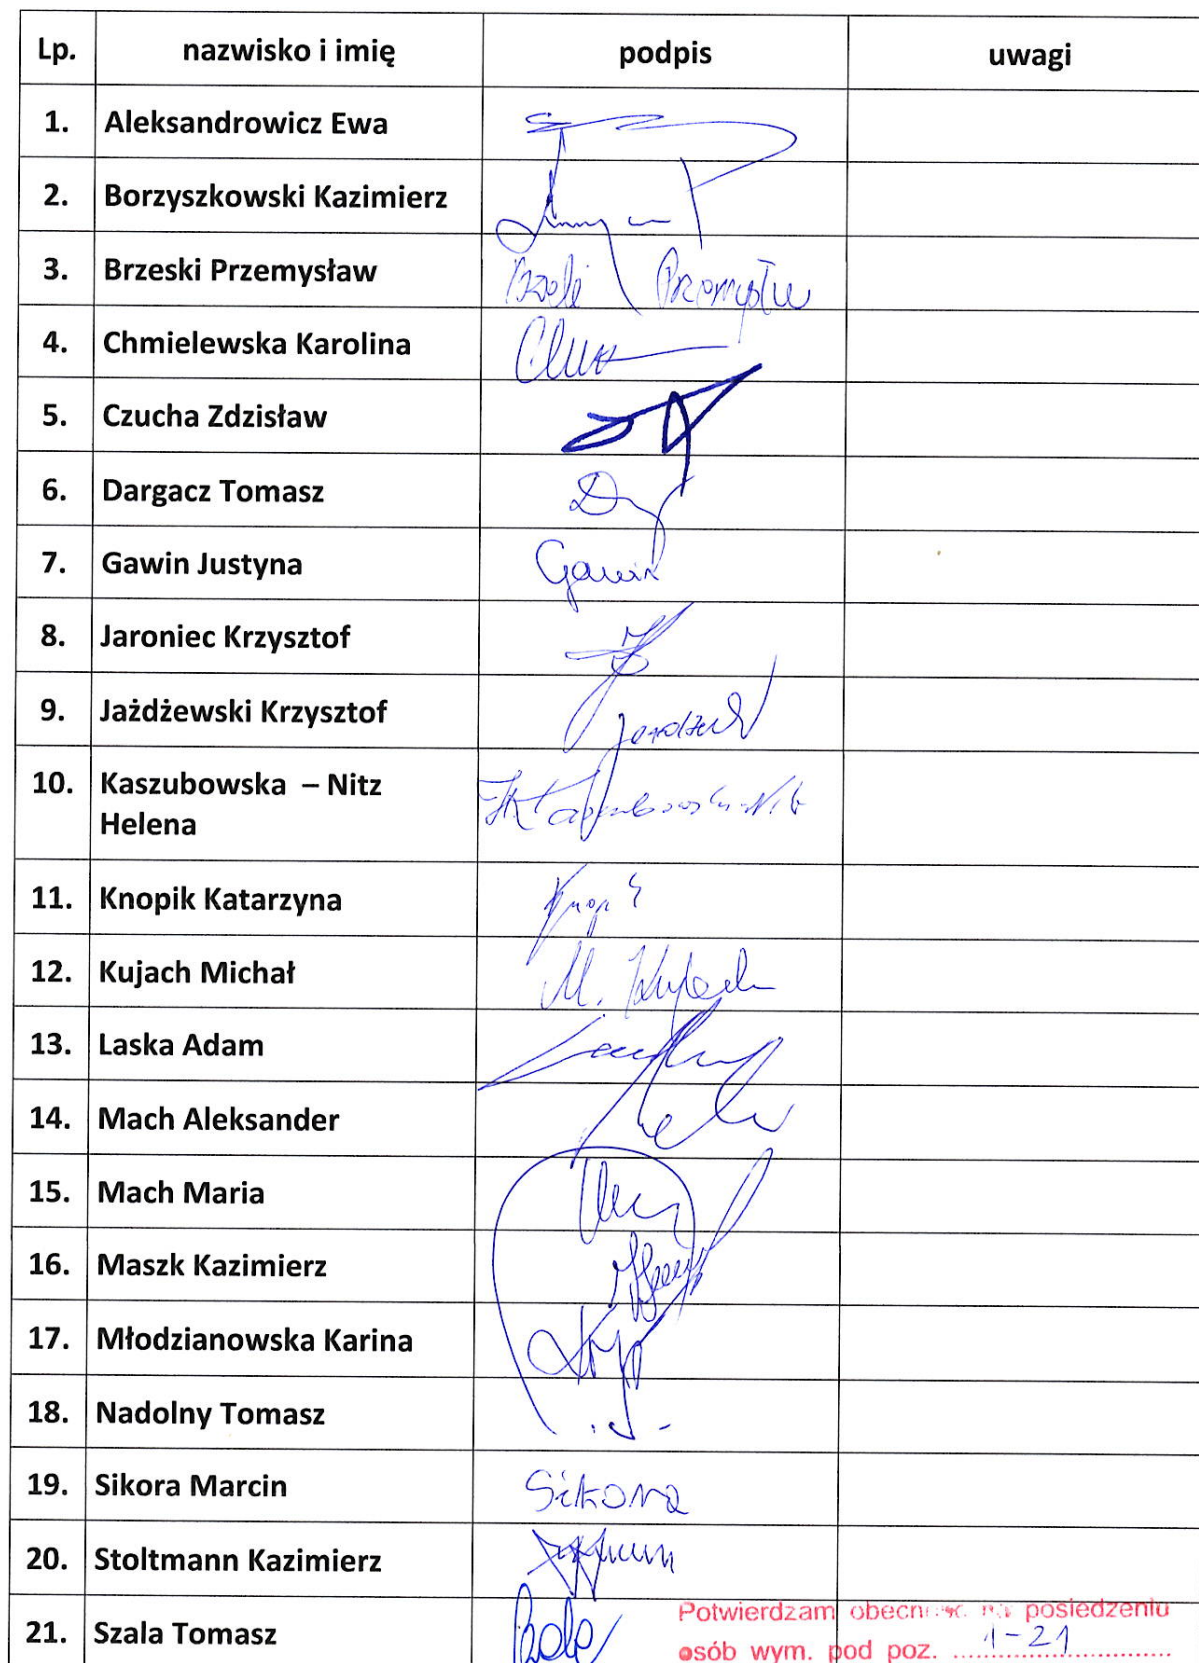 Lp. nazwisko i imię podpis uwagi
1. Aleksandrowicz Ewa
2. Borzyszkowski Kazimierz
3. Brzeski Przemysław
4. Chmielewska Karolina
5. Czucha Zdzisław
6. Dargacz Tomasz
7. Gawin Justyna Gawin
8. Jaroniec Krzysztof
9. Jażdżewski Krzysztof
10. Kaszubowska – Nitz
Helena
11. Knopik Katarzyna
12. Kujach Michał M. Kujach
13. Laska Adam
14. Mach Aleksander
15. Mach Maria
16. Maszk Kazimierz
17. Młodzianowska Karina
18. Nadolny Tomasz
19. Sikora Marcin Sikora
20. Stoltmann Kazimierz
21. Szala Tomasz
Potwierdzam obecność na posiedzeniu
osób wym. pod poz. 1-21